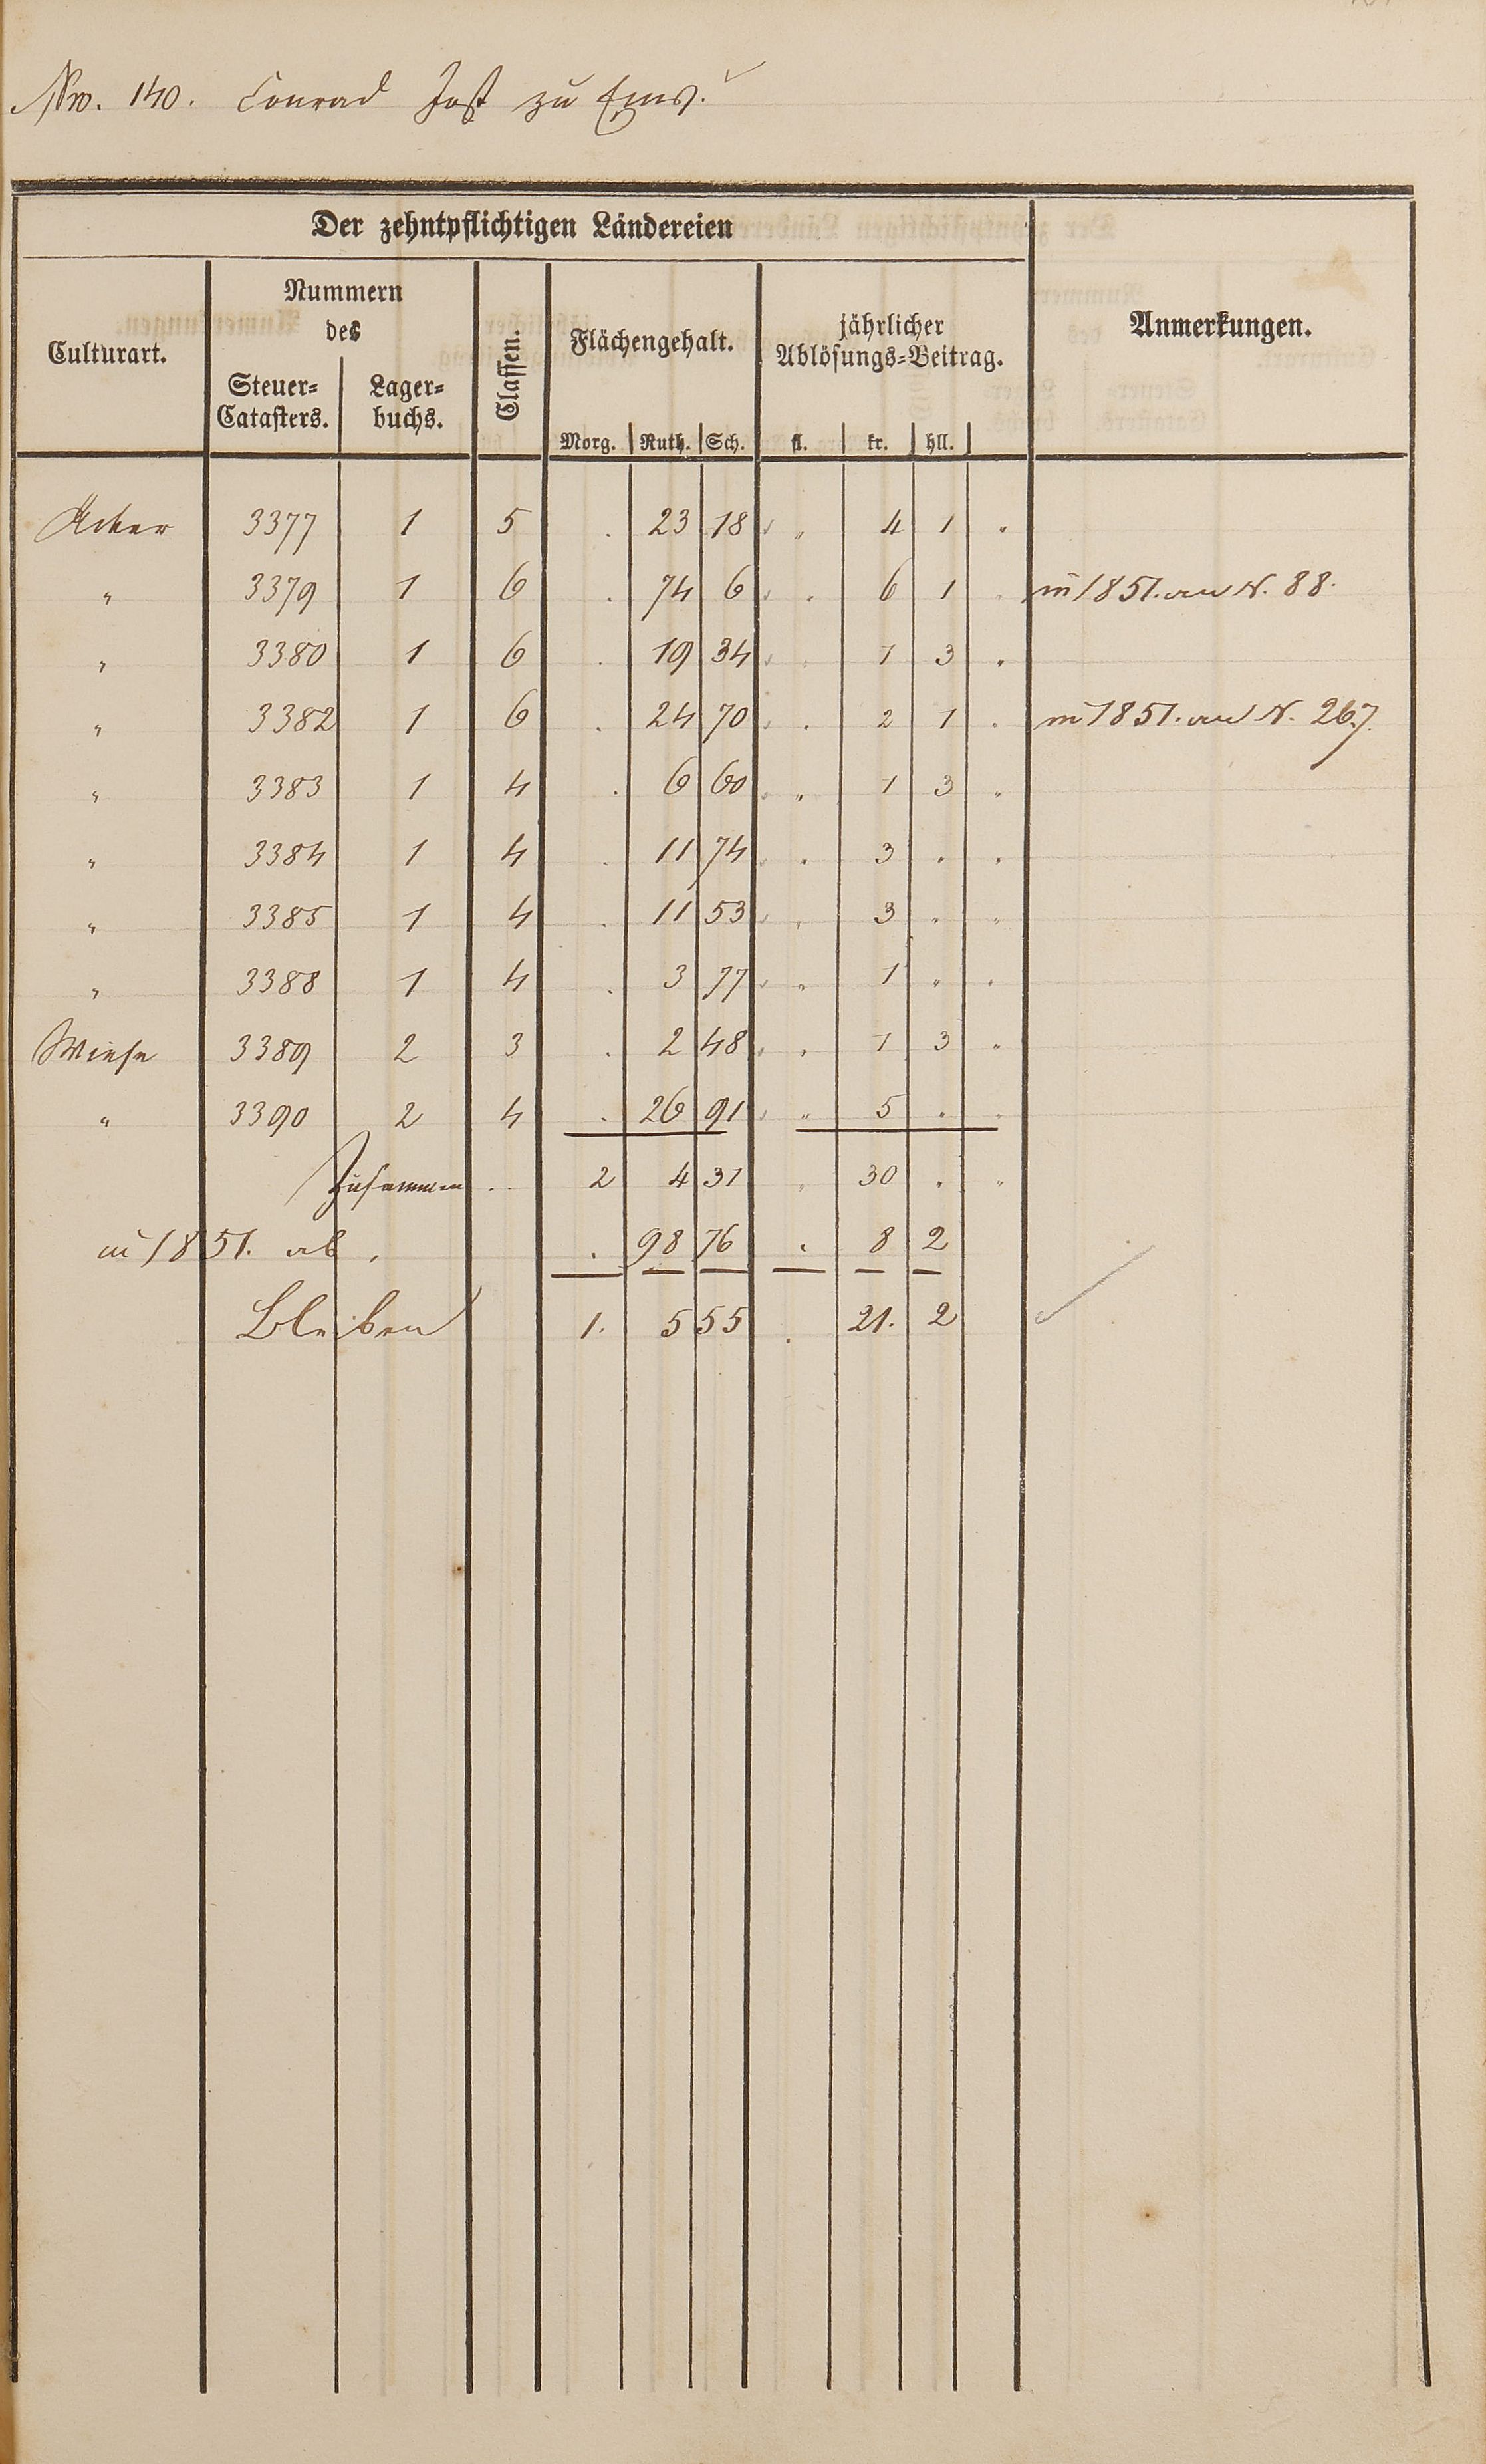 Nro. 140. Conrad Jost zu Ems.
Der zehntpflichtigen Ländereien
Culturart.
Nummern
des
Steuer=
Catasters.
Lager=
buchs.
Classen.
Flächengehalt.
Morg. Ruth. Sch.
jährlicher
Ablösungs=Beitrag.
fl. kr. hll.
Anmerkungen.
Acker 3377 1 5 . 23 18 „ 4 1 „
„ 3379 1 6 . 74 6 „ 6 1 „ in 1851. an N. 88.
„ 3380 1 6 . 19 34 „ 1 3 „
„ 3382 1 6 . 24 70 „ 2 1 „ in 1851. an N. 267.
„ 3383 1 4 . 6 60 „ 1 3 „
„ 3384 1 4 . 11 74 „ 3 „ „
„ 3385 1 4 . 11 53 „ 3 „ „
„ 3388 1 4 . 3 77 „ 1 „ „
Wiese 3389 2 3 . 2 48 „ 1 3 „
„ 3390 2 4 . 26 91 „ 5 „ „
Zusammen .. 2 4 31 „ 30 „ „
in 1851. ab, . 98 76 . 8 2
Bleiben 1. 5 55 . 21. 2